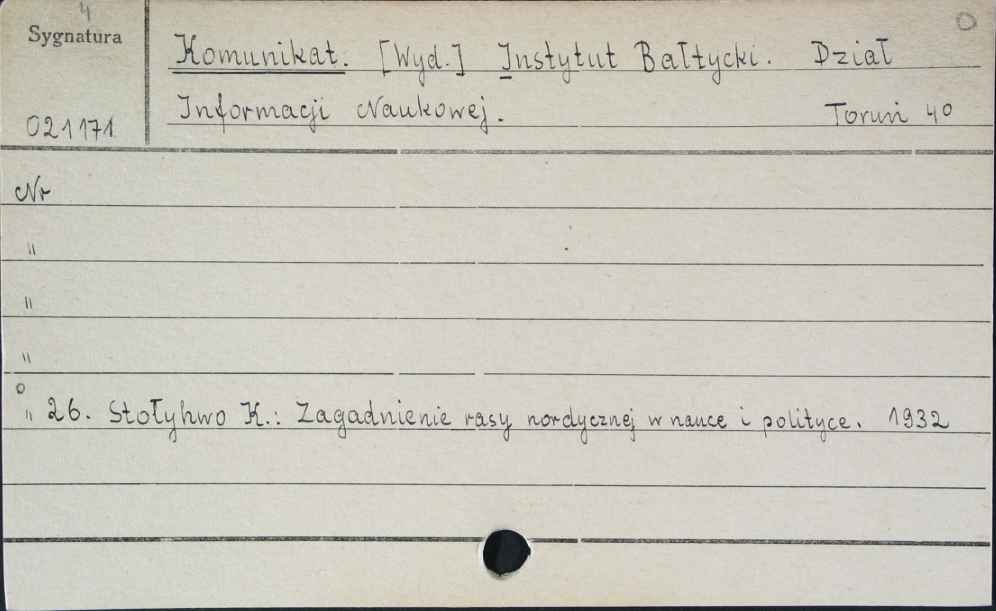 4
Sygnatura
Komunikat. [Wyd.] Instytut Bałtycki. Dział
O
021171
Informacji Naukowej. Toruń 4°
Nr
"
"
"
o
" 26. Stołyhwo K.: Zagadnienie rasy nordycznej w nauce i polityce. 1932